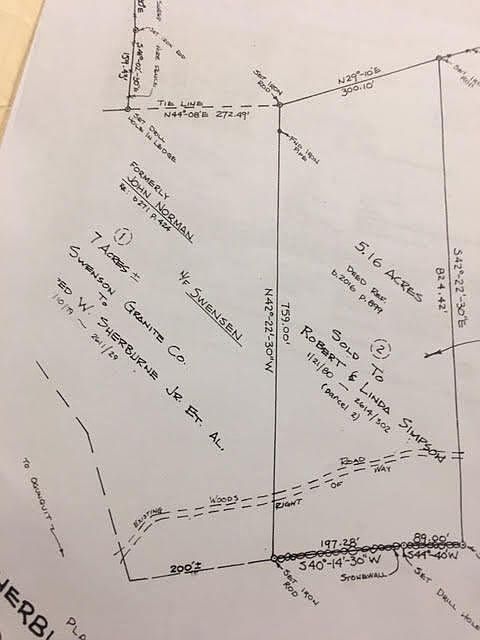 139.43'
S 48°-02'-30" W
TIE LINE
N44°-08'E 272.49'
SET DRILL
HOLE IN LEDGE
SET IRON
ROD
FND IRON
PIPE
N29°-10'E
300.10'
FORMERLY
JOHN NORMAN
RE: b271 P.424
1
7 ACRES ±
SWENSON GRANITE CO.
TO
W. SHERBURNE JR. ET. AL.
2611/29
N/F SWENSEN
N42°-22'-30"W
759.00'
5.16 ACRES
DEED REF.
b.2016 P.899
S42°-22'-30"E
824.42'
2
SOLD TO
ROBERT & LINDA SIMPSON
1/21/80 — 2614/302
(parcel 2)
EXISTING WOODS ROAD
RIGHT OF WAY
TO OGUNQUIT
200'±
197.28'
S40°-14'-30"W
89.00'
S44°-40'W
STONEWALL
SET IRON
ROD
SET DRILL HOLE